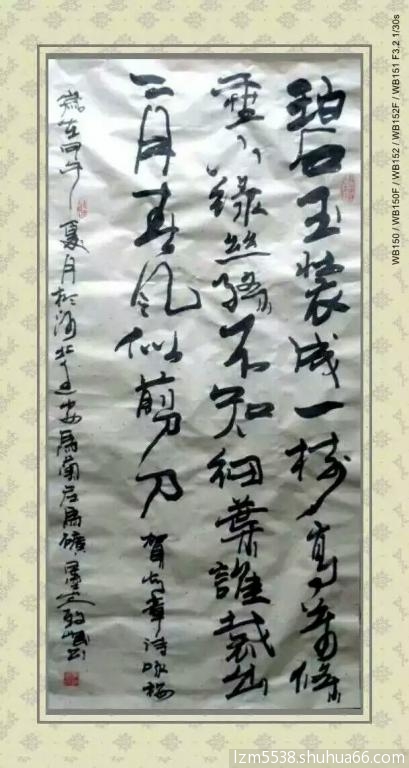 碧玉裝成一树高萬條
垂下綠丝絛不知細葉誰裁出
二月春风似剪刀 賀知章詩詠柳
歲在甲午夏月於河北遷安馬蘭
WB150 / WB150F / WB152 / WB152F / WB151 F3.2 1/30s
lzm5538.shuhua66.com